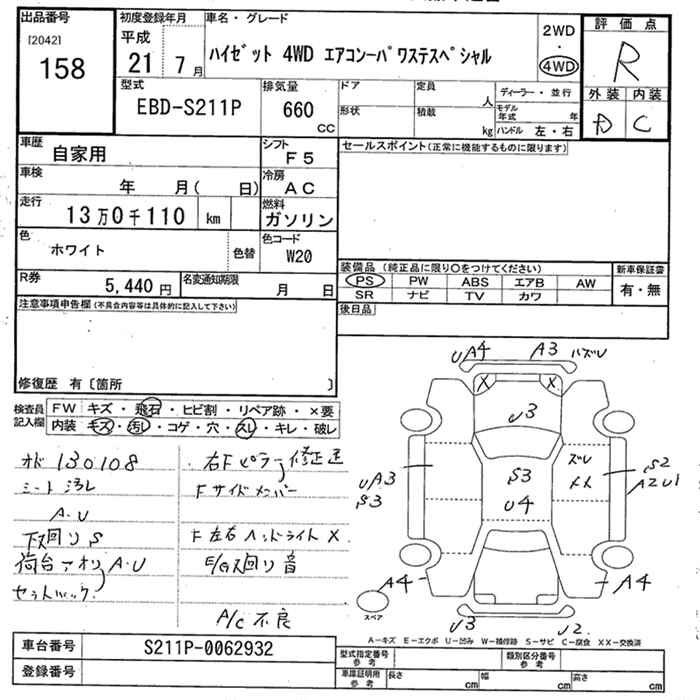 出品番号
[2042]
158
初度登録年月
平成
21 7月
車名・グレード
ハイゼット 4WD エアコンーパワステスペシャル
2WD
・
4WD
評価点
R
外装 内装
D C
型式
EBD-S211P
排気量
660
CC
ドア
定員
人
形状
積載
kg
ディーラー・並行
モデル年式 年
ハンドル 左・右
車歴
自家用
シフト
F5
車検
年 月( 日)
冷房
AC
走行
13万0千110 km
燃料
ガソリン
色
ホワイト
色替
色コード
W20
R券
5,440円
名変通知期限
月 日
セールスポイント(正常に機能するものに限ります)
装備品(純正品に限り○をつけてください)
PS PW ABS エアB AW
SR ナビ TV カワ
新車保証書
有・無
後日品
注意事項申告欄(不具合内容等は具体的に記入して下さい)
修復歴 有〔箇所 〕
検査員記入欄
FW キズ・飛石・ヒビ割・リペア跡・×要
内装 キズ・汚レ・コゲ・穴・スレ・キレ・破レ
オド 130108
シート汚レ
A.U
下回りS
荷台アオリA.U
セットバック
右Fピラー修正迄
Fサイドメンバー
F左右ヘッドライトX
E/Gス回り音
A/C不良
UA4 A3 ハズレ
X X
U3
UA3
S3
S3
U4
ズレ
メメ
S2
A2U1
A4 A4
スペア
U3 U2
A−キズ E−エクボ U−凹み W−補修跡 S−サビ C−腐食 XX−交換済
車台番号
S211P-0062932
登録番号
型式指定番号
参考
類別区分番号
参考
車庫証明用
参考
長さ cm 幅 cm 高さ cm